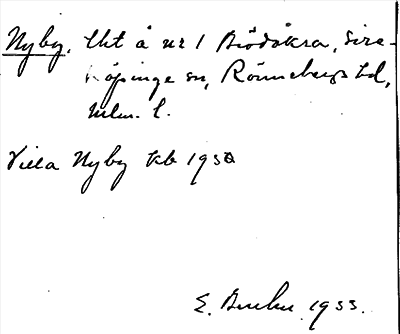 Nyby. Lht å nr 1 Brödåkra, Sire-
köpinge sn, Rönnebergs hd,
Mlm. l.
Villa Nyby kb 1950
E. 1933.